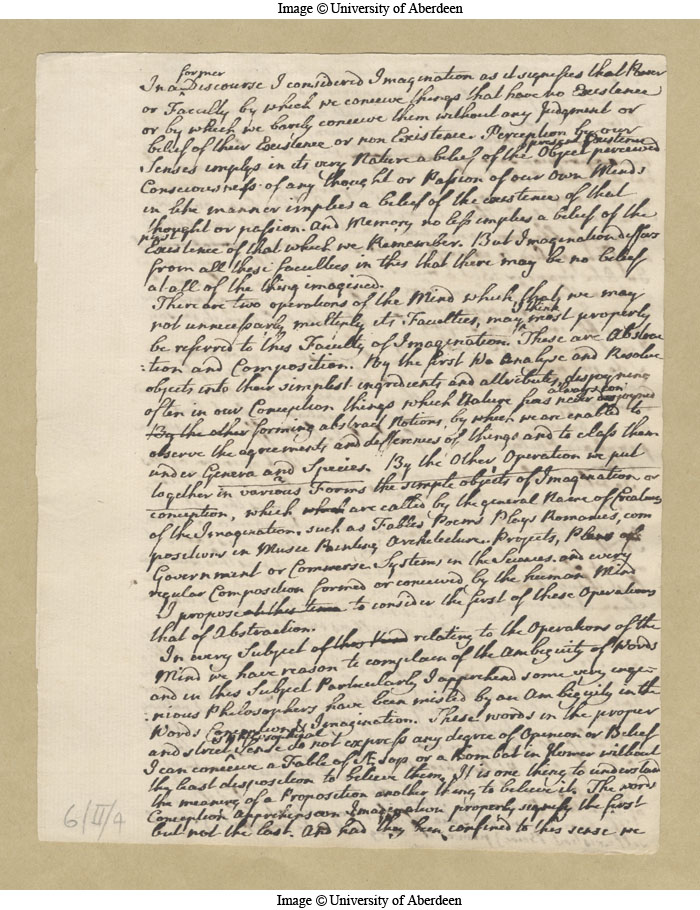 Image © University of Aberdeen
former
In a Discourse I considered Imagination as it signifies that Power
or Faculty by which we conceive things that have no Existence
or by which we barely conceive them without any Judgment or
belief of their Existence or non Existence. Perception by our
present Existence
Senses implys in its very Nature a belief of the Object perceived
Consciousness of any thought or Passion of our Own Minds
in like manner implies a belief of the existence of that
thought or passion. And Memory no less implies a belief of the
past
Existence of that which we Remember. But Imagination differs
from all these faculties in this that there may be no belief
at all of the thing imagined.
There are two operations of the Mind which, that we may
I think
not unnecessarly multiply its Faculties, may most properly
be referred to this Faculty of Imagination. These are Abstrac
:tion and Composition. By the first We Analyse and Resolve
objects into their simplest ingredients and attributes, disjoyning
always con
often in our Conception things which Nature has never disjoyned
By the other forming abstract Notions, by which we are enabled to
observe the agreements and differences of things and to class them
under Genera and Species. By the Other Operation we put
together in various Forms the simple objects of Imagination or
conception, which which are called by the general Name of Creatures
of the Imagination, such as Fables Poems Plays Romances, com
positions in Music Painting Architecture. Projects, Plans of
Government or Commerse. Systems in the Sciences. and every
regular Composition formed or conceived by the human Mind
I propose at this time to consider the first of these Operations
that of Abstraction.
In every Subject of this kind relating to the Operations of the
Mind we have reason to complain of the Ambiguity of Words
and in this Subject Particularly I apprehend some very inge-
:nious Philosophers have been misled by an Ambiguity in the
Words Conception & Imagination. These words in the proper
and strict Sense do not express any degree of Opinion or Belief
I can conceive a Fable of Æsops or a Combat in Homer without
the least disposition to believe them. It is one thing to understand
the meaning of a Proposition another thing to believe it. The words
Conception Apprehension Imagination properly signify the first
but not the last. And had they been confined to this sense we
6/II/4
Image © University of Aberdeen